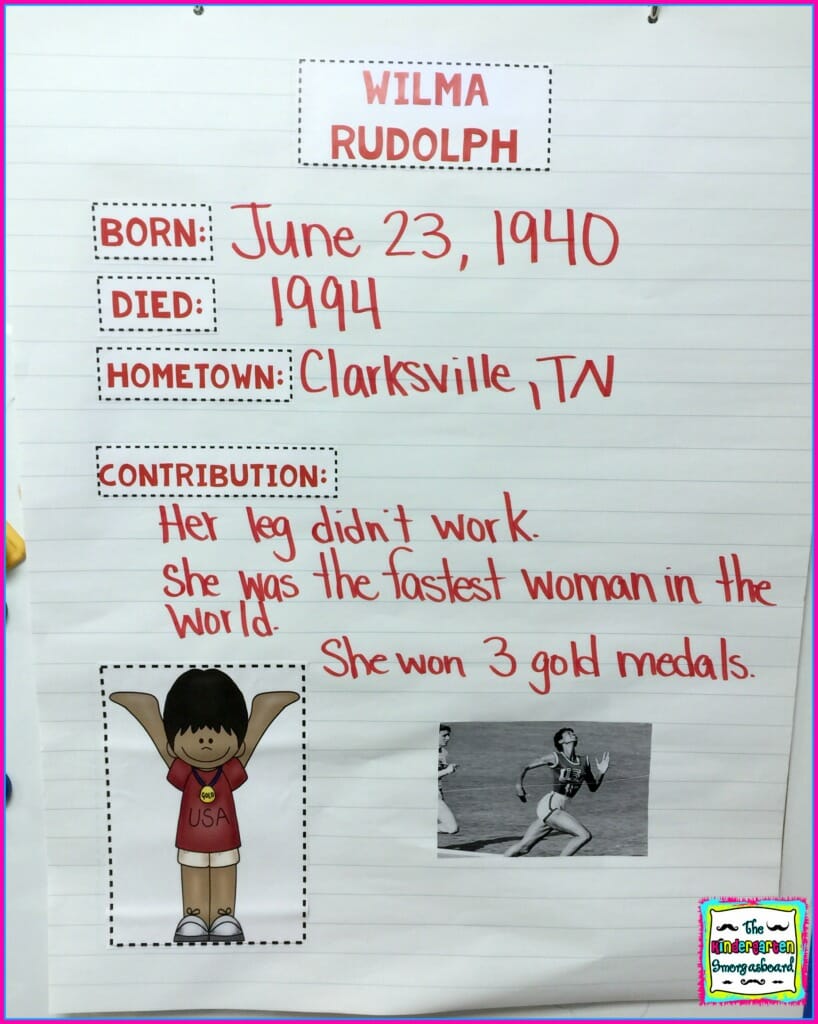 WILMA
RUDOLPH
BORN: June 23, 1940
DIED: 1994
HOMETOWN: Clarksville, TN
CONTRIBUTION:
Her leg didn't work.
She was the fastest woman in the
world.
She won 3 gold medals.
GOLD
USA
The
Kindergarten
Smorgasboard